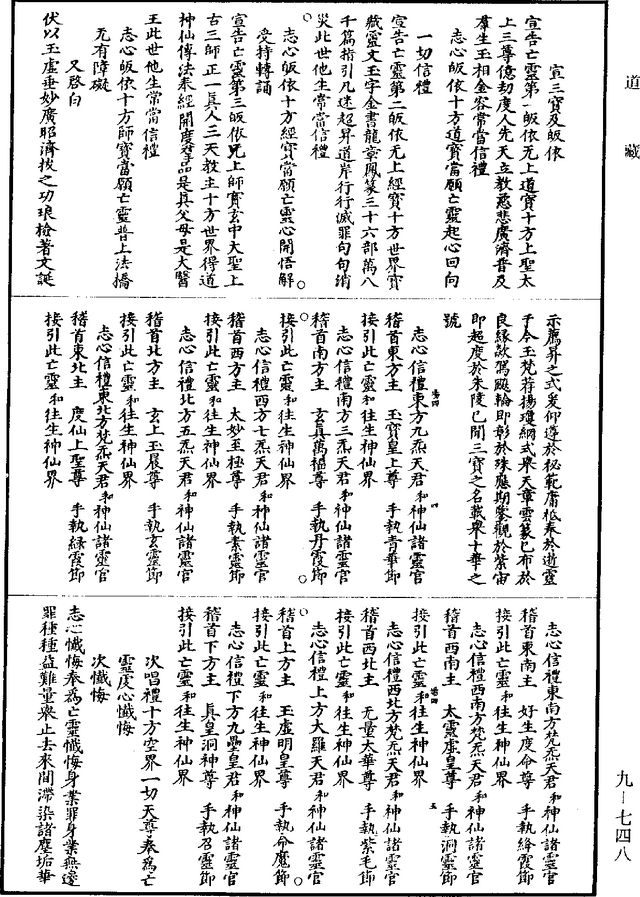 道藏
宣三寶及皈依
宣告亡靈第一皈依无上道寶十方上聖太
上三尊億劫度人先天立教慈悲廣濟普及
羣生玉相金容常當信禮
志心皈依十方道寶當願亡靈起心回向
一切信禮
宣告亡靈第二皈依无上經寶十方世界寶
藏靈文玉字金書龍章鳳篆三十六部萬八
千篇指引凡迷超昇道岸行行滅罪句句消
災此世他生常當信禮
志心皈依十方經寶當願亡靈心開悟解
受持轉誦
宣告亡靈第三皈依无上師寶玄中大聖上
古三師正一真人三天教主十方世界得道
神仙傳法奉經開度羣品是真父母是大醫
王此世他生常當信禮
志心皈依十方師寶當願亡靈普上法橋
无有障礙
又啓白
伏以玉虛垂妙廣昭濟拔之功琅檢著文誕
示薦昇之式爰仰遵於秘範庸祗奉於逝靈
于今玉梵荐揚瓊綱式舉天章雲篆已布於
良緣歘駕飈輪即彰於殊應期鑒觀於紫宙
即超度於朱陵已聞三寶之名載舉十華之
號
志心信禮東方九炁天君和神仙諸靈官
稽首東方主　玉寶皇上尊　手執青華節
接引此亡靈和往生神仙界
志心信禮南方三炁天君和神仙諸靈官
稽首南方主　玄真萬福尊　手執丹霞節
接引此亡靈和往生神仙界
志心信禮西方七炁天君和神仙諸靈官
稽首西方主　太妙至極尊　手執素靈節
接引此亡靈和往生神仙界
志心信禮北方五炁天君和神仙諸靈官
稽首北方主　玄上玉晨尊　手執玄靈節
接引此亡靈和往生神仙界
志心信禮東北方梵炁天君和神仙諸靈官
稽首東北主　度仙上聖尊　手執綠霞節
接引此亡靈和往生神仙界
志心信禮東南方梵炁天君和神仙諸靈官
稽首東南主　好生度命尊　手執絳霞節
接引此亡靈和往生神仙界
志心信禮西南方梵炁天君和神仙諸靈官
稽首西南主　太靈虛皇尊　手執洞靈節
接引此亡靈和往生神仙界
志心信禮西北方梵炁天君和神仙諸靈官
稽首西北主　无量太華尊　手執紫毛節
接引此亡靈和往生神仙界
志心信禮上方大羅天君和神仙諸靈官
稽首上方主　玉虛明皇尊　手執命魔節
接引此亡靈和往生神仙界
志心信禮下方九壘皇君和神仙諸靈官
稽首下方主　真皇洞神尊　手執召靈節
接引此亡靈和往生神仙界
次唱禮十方空界一切天尊奉為亡
靈虔心懺悔
次懺悔
志心懺悔奉為亡靈懺悔身業罪身業無邊
罪種種益難量舉止去來間滯染諸塵垢華
九－七四八